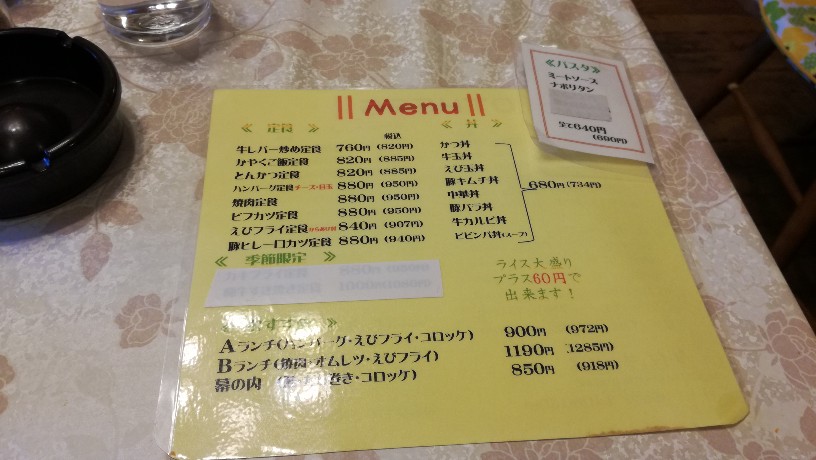 Menu
≪ 定食 ≫
税込
牛レバー炒め定食 760円 (820円)
かやくご飯定食 820円 (885円)
とんかつ定食 820円 (885円)
ハンバーグ定食 チーズ・目玉 880円 (950円)
焼肉定食 880円 (950円)
ビフカツ定食 880円 (950円)
えびフライ定食 840円 (907円)
豚ヒレ一口カツ定食 880円 (940円)
≪ 丼 ≫
かつ丼
牛玉丼
えび玉丼
豚キムチ丼
中華丼
豚バラ丼
牛カルビ丼
ビビンバ丼(スープ)
680円 (734円)
≪ 季節限定 ≫
ライス大盛り
プラス60円で
出来ます!
Aランチ(ハンバーグ・えびフライ・コロッケ) 900円 (972円)
Bランチ(焼肉・オムレツ・えびフライ) 1190円 1285円)
幕の内 巻き・コロッケ) 850円 (918円)
≪パスタ≫
ミートソース
ナポリタン
全て640円
(690円)